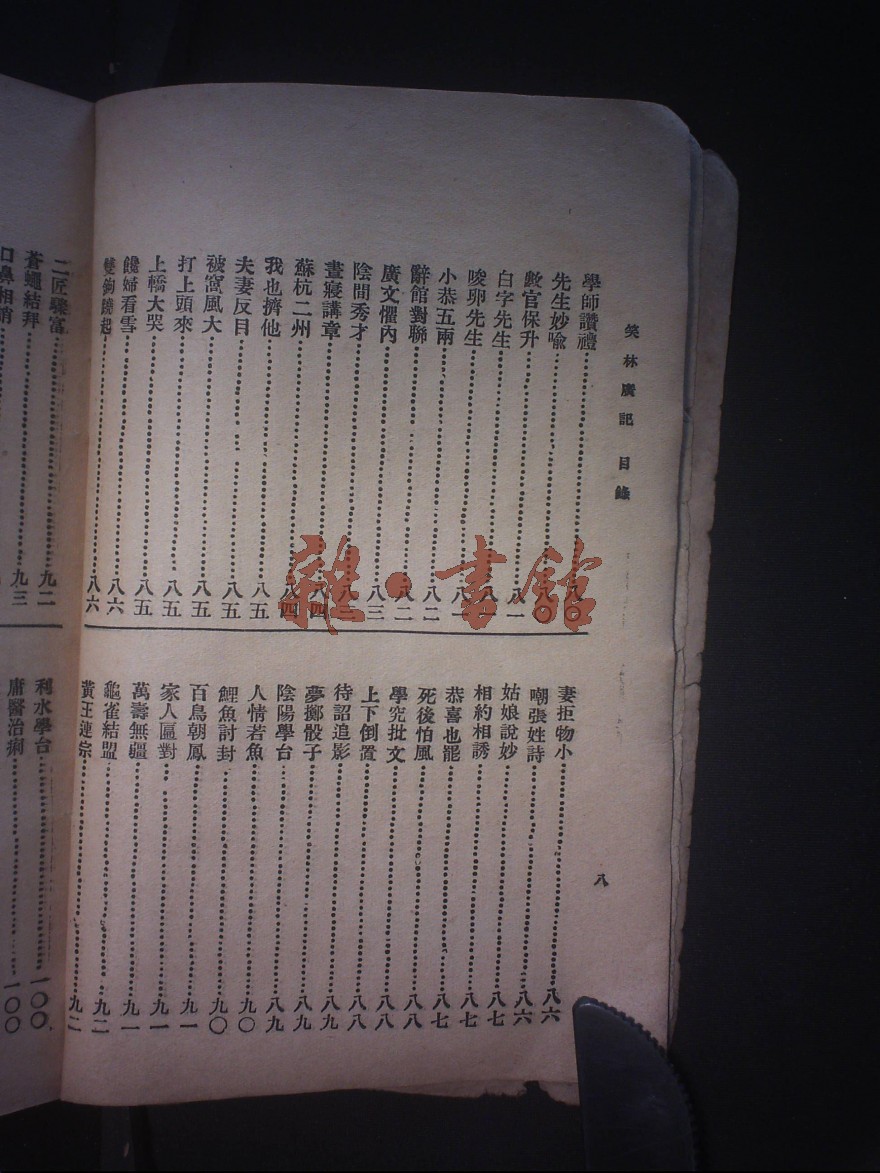 笑林廣記 目錄
八
學師讚禮 八〇
先生妙喩 八〇
敎官保升 八一
白字先生 八一
唆卵先生 八一
小恭五兩 八二
辭館對聯 八二
廣文懼內 八三
陰間秀才
晝寢講章 八四
蘇杭二州 八四
我也擠他 八五
夫妻反目 八五
被窩風大 八五
打上頭來 八五
上轎大哭 八五
饞婦看雪 八六
雙鉤蹺起 八六
妻拒物小 八六
嘲張姓詩 八六
姑娘說妙 八七
相約相誘 八七
恭喜也罷 八七
死後怕風 八八
學究批文 八八
上下倒置 八八
待詔追影 八九
夢擲骰子 八九
陰陽學台 八九
人情若魚 九〇
鯉魚討封 九〇
百鳥朝鳳 九一
家人匾對 九一
萬壽無疆 九一
龜雀結盟 九二
黃汪連宗 九二
二匠驟富 九二
蒼蠅結拜 九三
口鼻相誚
利水學台 一〇〇
庸醫治病 一〇〇
雜·書館